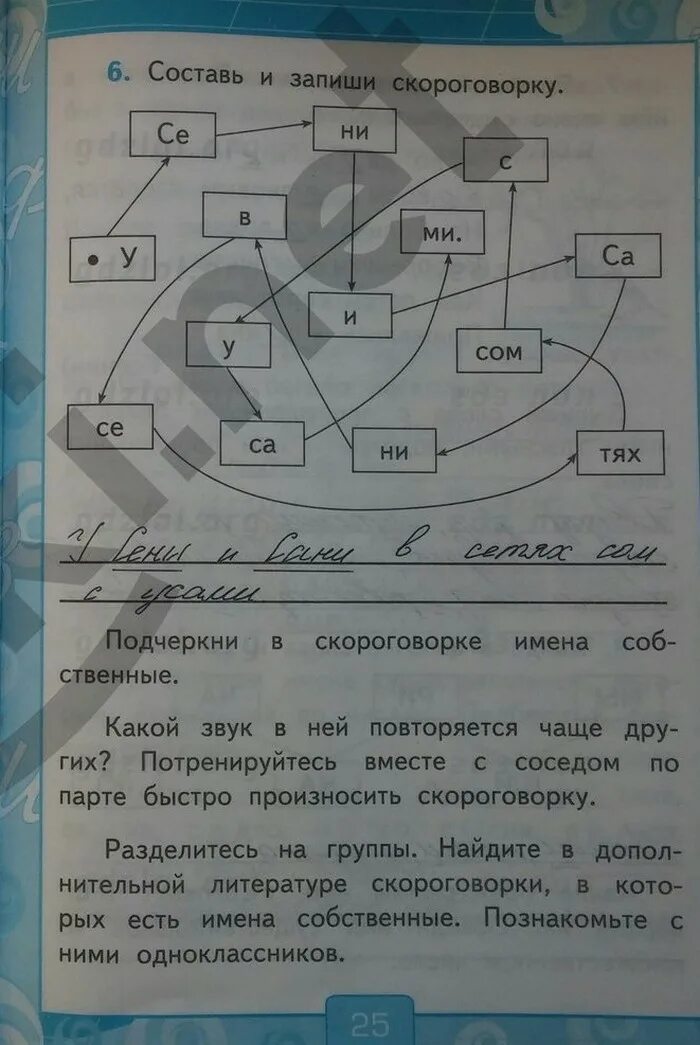 6. Составь и запиши скороговорку.
Се
ни
с
в
ми.
• У
Са
и
у
сом
се
са
ни
тях
У Сени и Сани в сетях сом
с усами
Подчеркни в скороговорке имена соб-
ственные.
Какой звук в ней повторяется чаще дру-
гих? Потренируйтесь вместе с соседом по
парте быстро произносить скороговорку.
Разделитесь на группы. Найдите в допол-
нительной литературе скороговорки, в кото-
рых есть имена собственные. Познакомьте с
ними одноклассников.
25